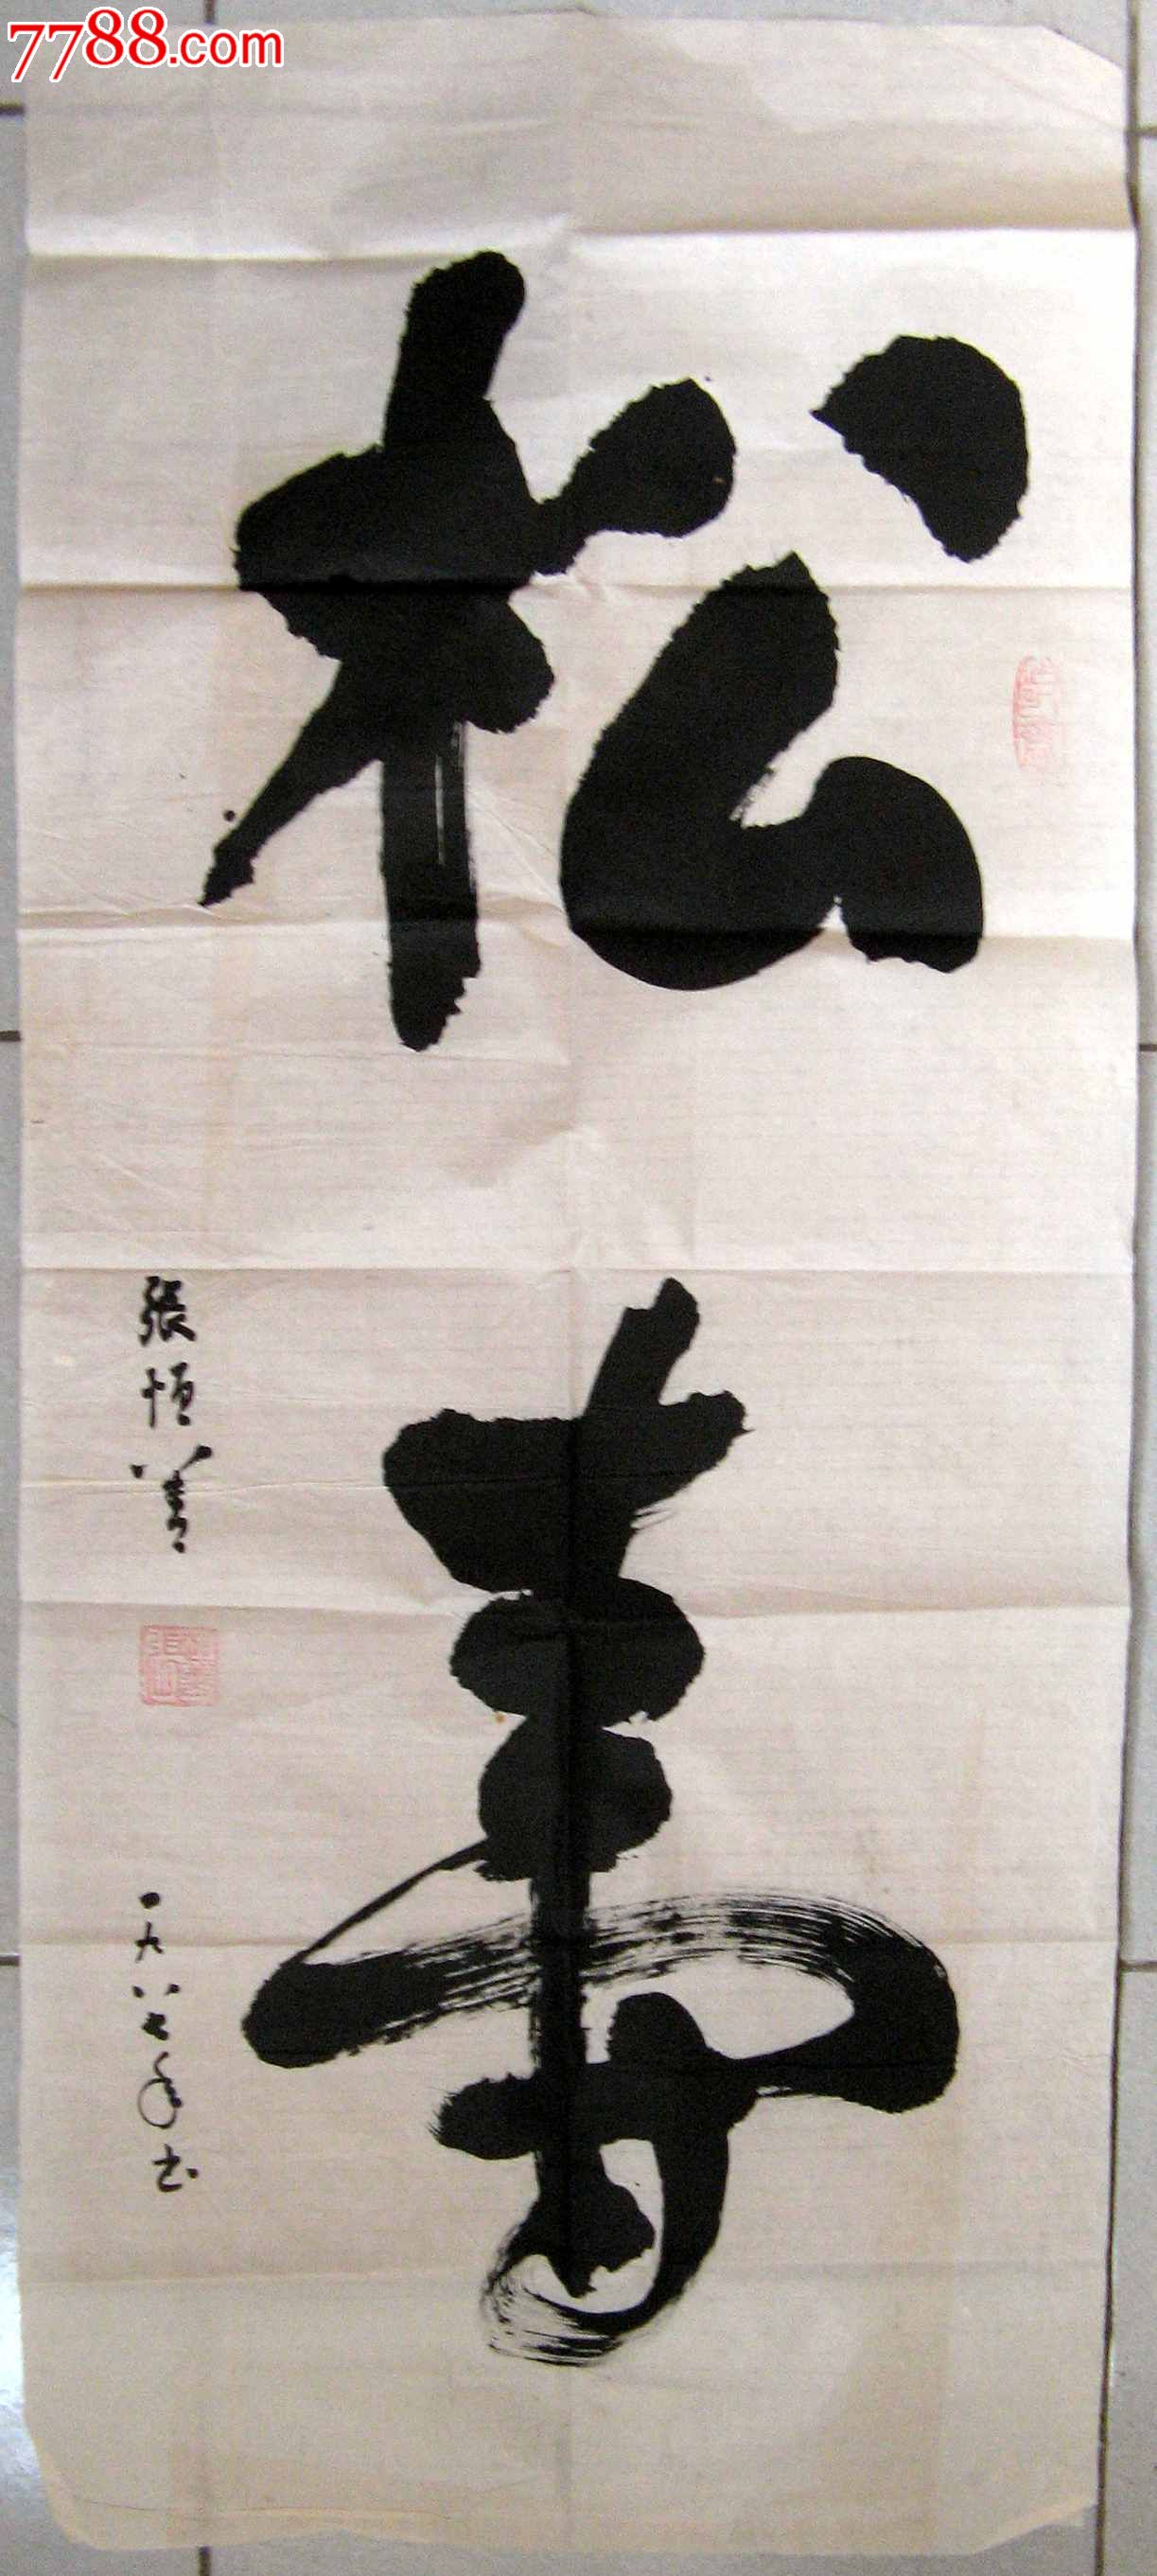 7788.com
松
寿
張恒善
一九八七年书